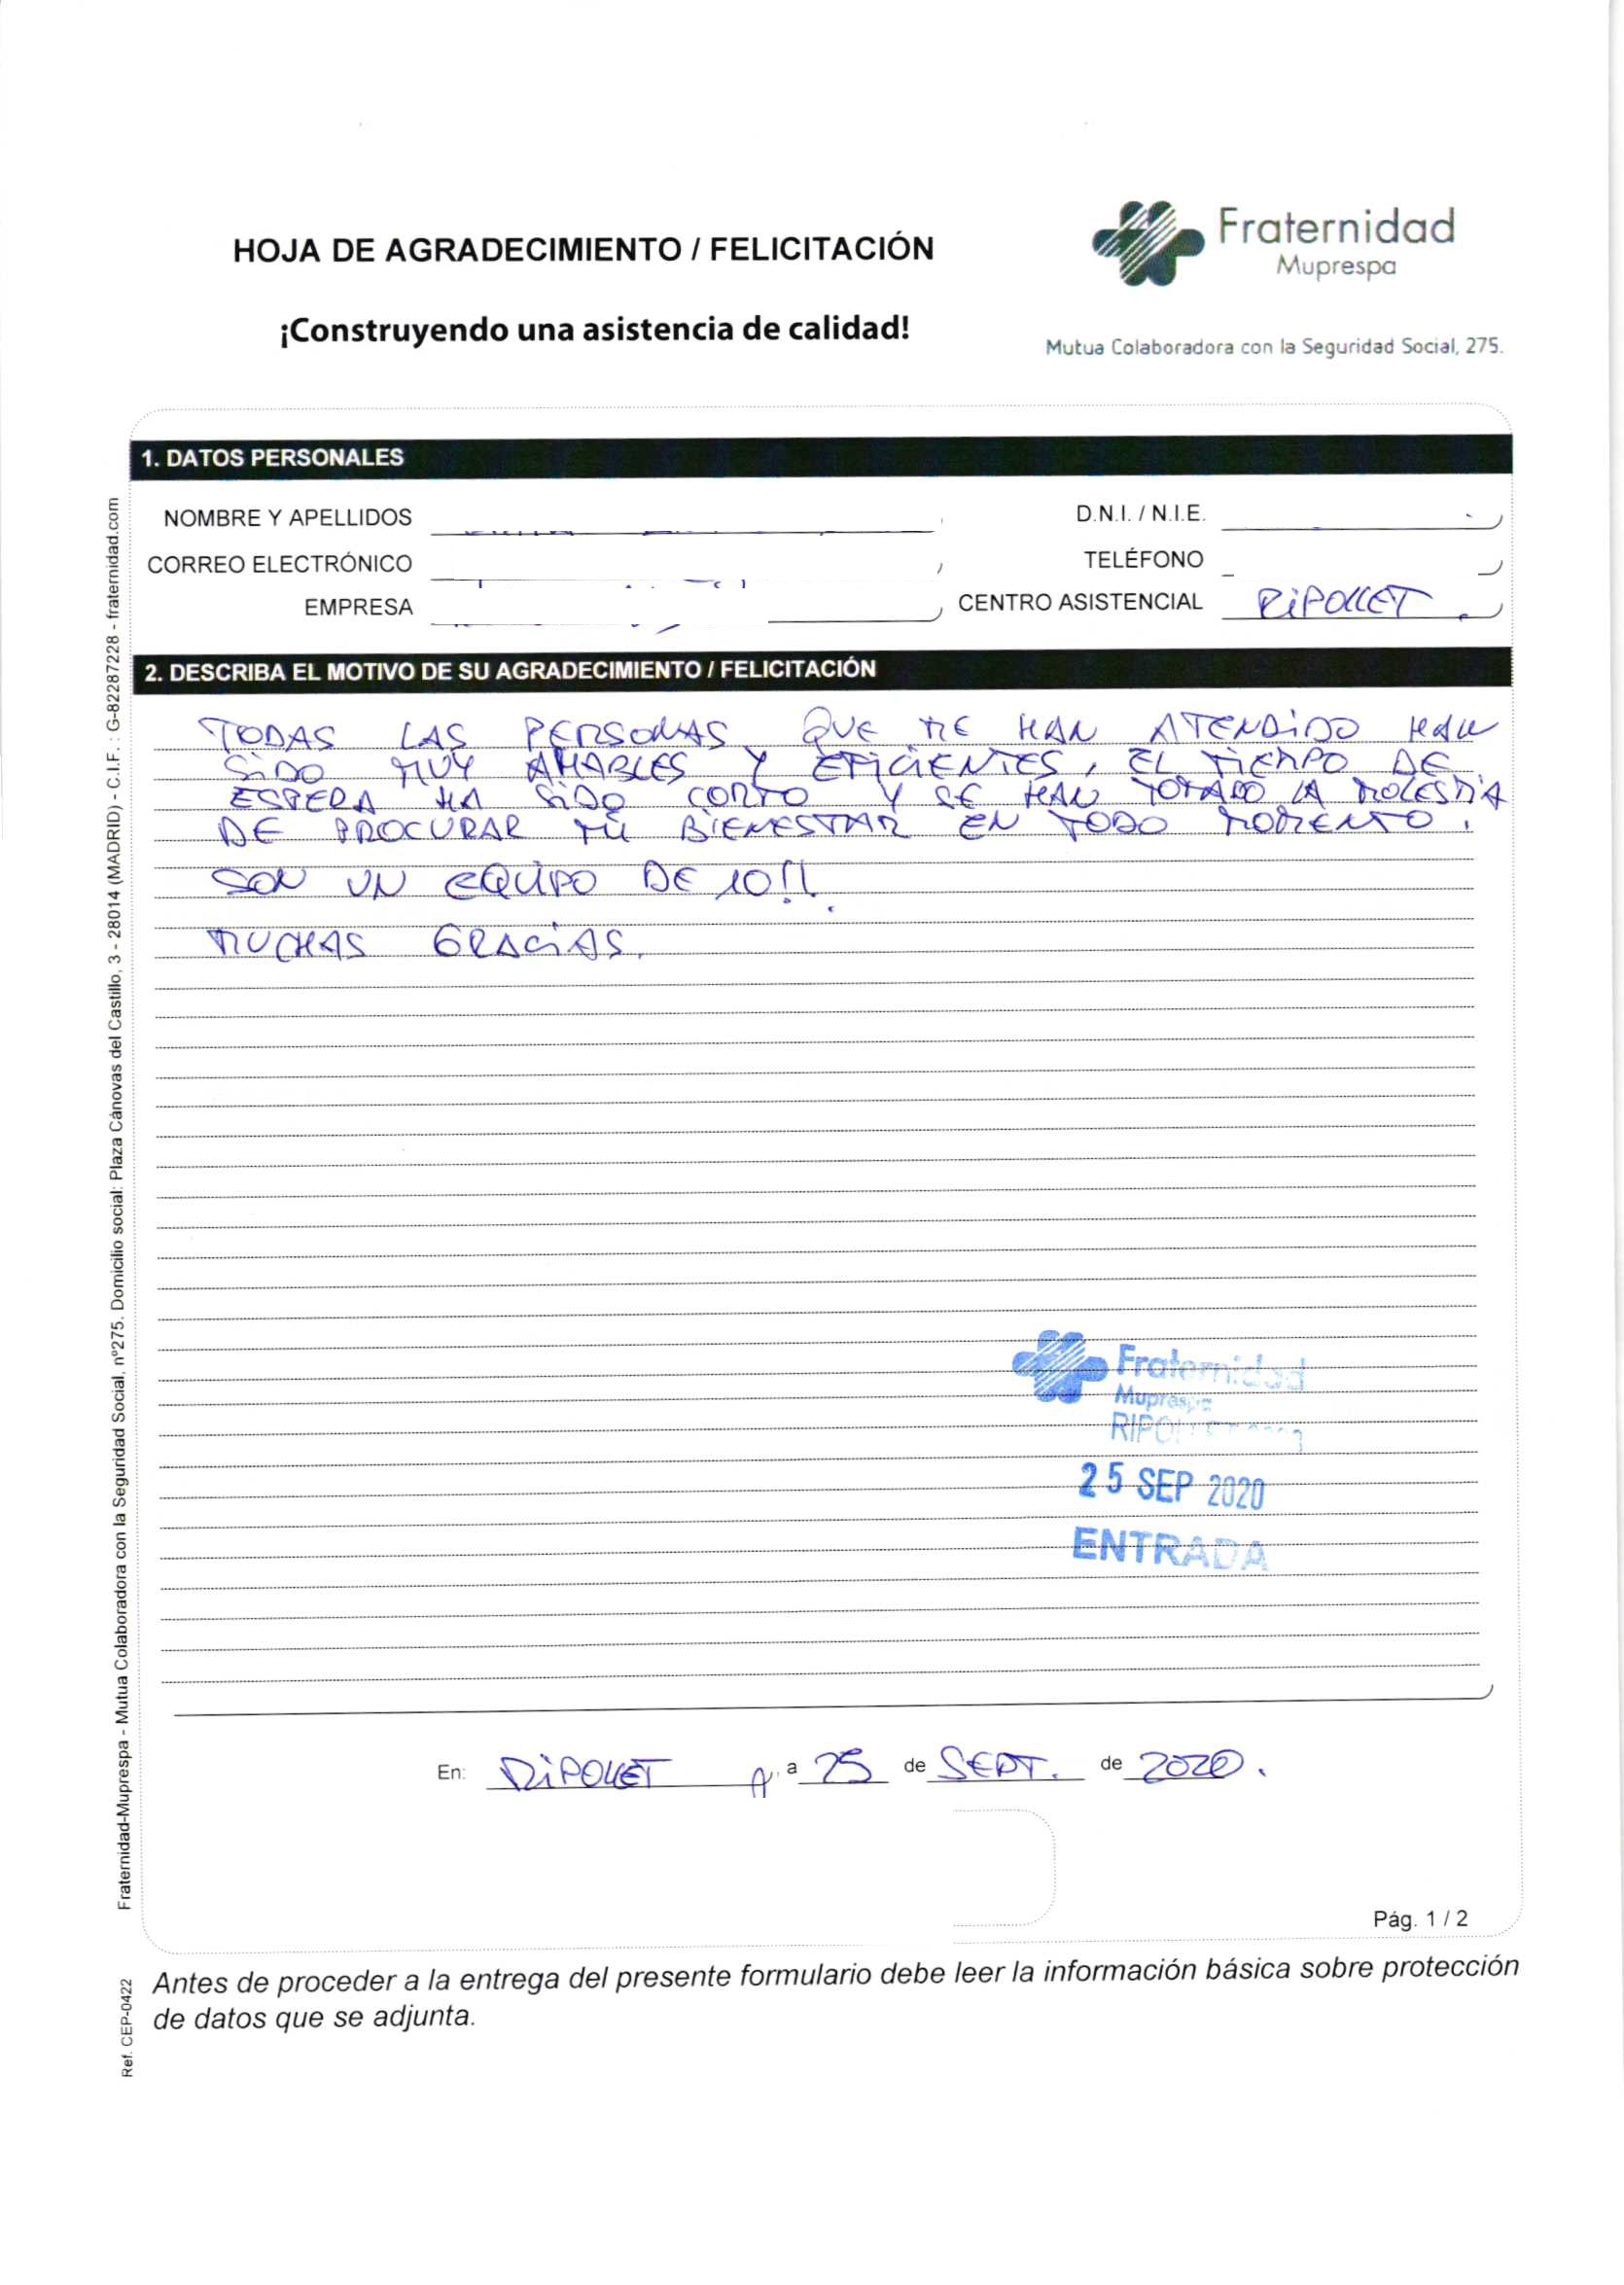 HOJA DE AGRADECIMIENTO / FELICITACIÓN
¡Construyendo una asistencia de calidad!
Fraternidad
Muprespa
Mutua Colaboradora con la Seguridad Social, 275.
1. DATOS PERSONALES
NOMBRE Y APELLIDOS
D.N.I. / N.I.E.
CORREO ELECTRÓNICO
TELÉFONO
EMPRESA
CENTRO ASISTENCIAL RIPOLLET
2. DESCRIBA EL MOTIVO DE SU AGRADECIMIENTO / FELICITACIÓN
TODAS LAS PERSONAS QUE ME HAN ATENDIDO HAN
SIDO MUY AMABLES Y EFICIENTES, EL TIEMPO DE
ESPERA HA SIDO CORTO Y SE HAN TOMADO LA MOLESTIA
DE PROCURAR MI BIENESTAR EN TODO MOMENTO.
SON UN EQUIPO DE 10!!
MUCHAS GRACIAS.
Fraternidad
Muprespa
25 SEP 2020
ENTRADA
En: RIPOLLET a 25 de SEPT. de 2020.
Pág. 1 / 2
Antes de proceder a la entrega del presente formulario debe leer la información básica sobre protección
de datos que se adjunta.
Fraternidad-Muprespa - Mutua Colaboradora con la Seguridad Social, nº275. Domicilio social: Plaza Cánovas del Castillo, 3 - 28014 (MADRID) - C.I.F. : G-82287228 - fraternidad.com
Ref. CEP-0422